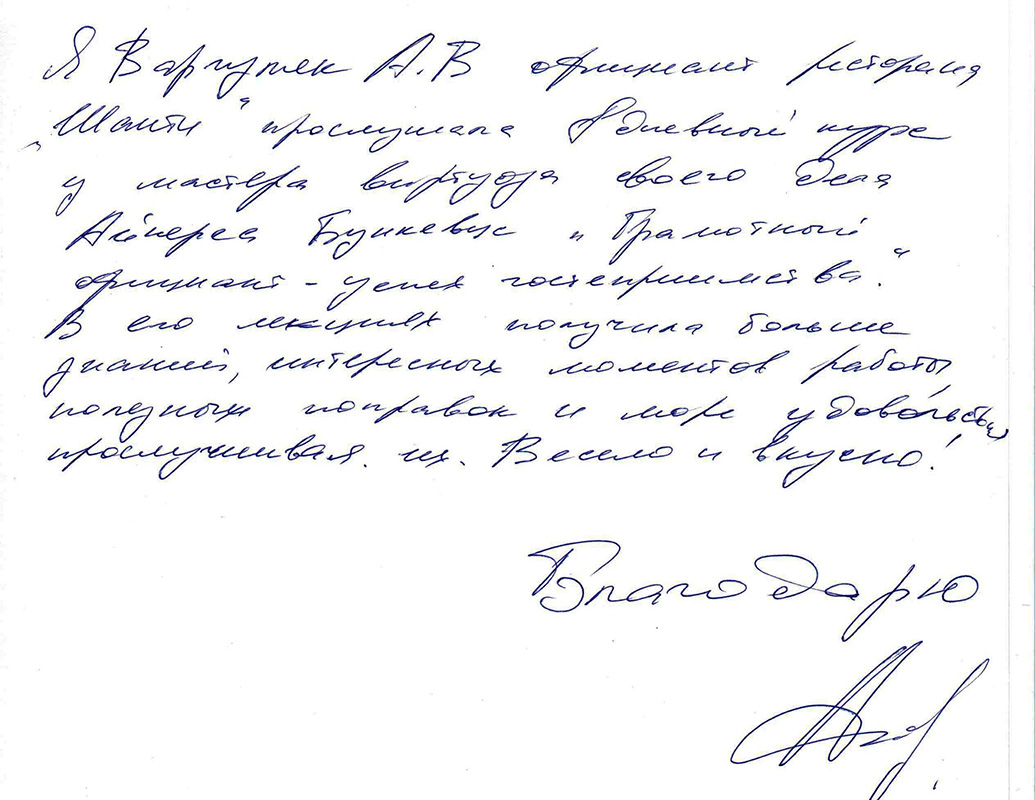 Я Варгуляк А.В официант ресторана
„Шанти" прослушала 8 дневный курс
у мастера виртуоза своего дела
Айнереса Бункевус „Грамотный
официант - успех гостеприимства."
В его лекциях получила больше
знаний, интересных моментов работы,
полезных поправок и море удовольствия
прослушивая их. Весело и вкусно!
Благодарю